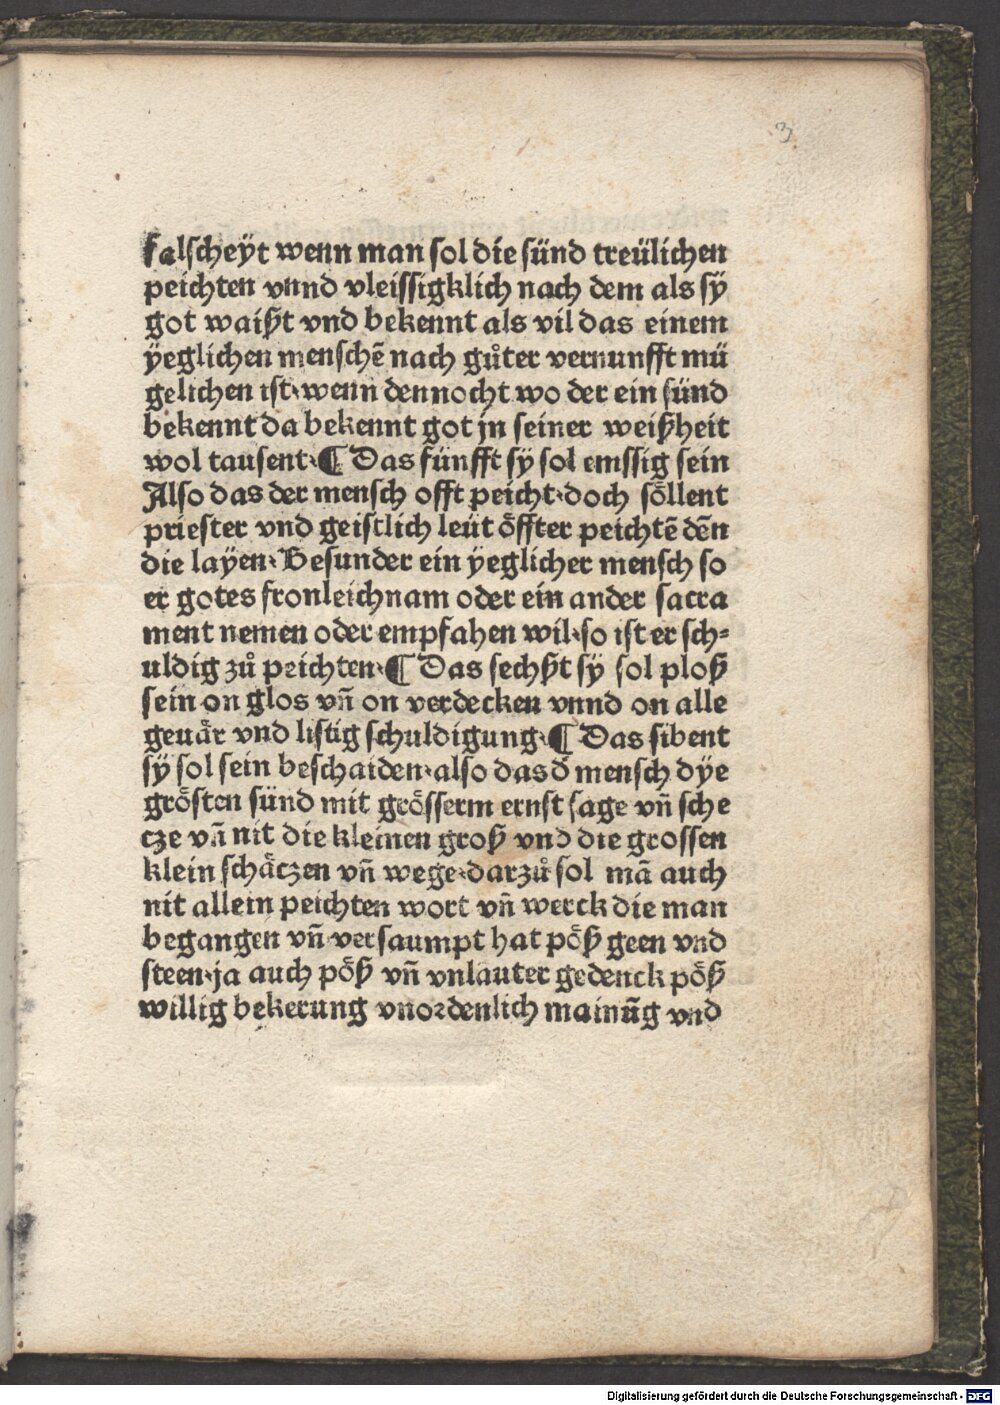 3
falscheÿt wenn man sol die sünd treülichen
peichten vnnd vleissigklich nach dem als sÿ
got waißt vnd bekennt als vil das einem
ÿeglichen menschē nach gůter vernunfft mü
gelichen ist·wenn dennocht wo der ein sünd
bekennt da bekennt got jn seiner weißheit
wol tausent·¶ Das fünfft sÿ sol emssig sein
Also das der mensch offt peicht·doch söllent
priester vnd geistlich leüt öffter peichtē dēn
die laÿen·Besunder ein ÿeglicher mensch so
er gotes fronleichnam oder ein ander sacra
ment nemen oder empfahen wil·so ist er sch⸗
uldig zů peichten·¶ Das sechßt sÿ sol ploß
sein on glos vn̄ on verdecken vnnd on alle
geuär vnd listig schuldigung·¶ Das sibent
sÿ sol sein beschaiden·also das d̄ mensch dÿe
grösten sünd mit grösserm ernst sage vn̄ sche
cze vn̄ nit die kleinen groß vnd die grossen
klein schäczen vn̄ wege·darzů sol mā auch
nit allein peichten wort vn̄ werck die man
begangen vn̄ versaumpt hat pöß geen vnd
steen·ja auch pöß vn̄ vnlauter gedenck pöß
willig bekerung vnordenlich mainūg vnd
Digitalisierung gefördert durch die Deutsche Forschungsgemeinschaft - DFG